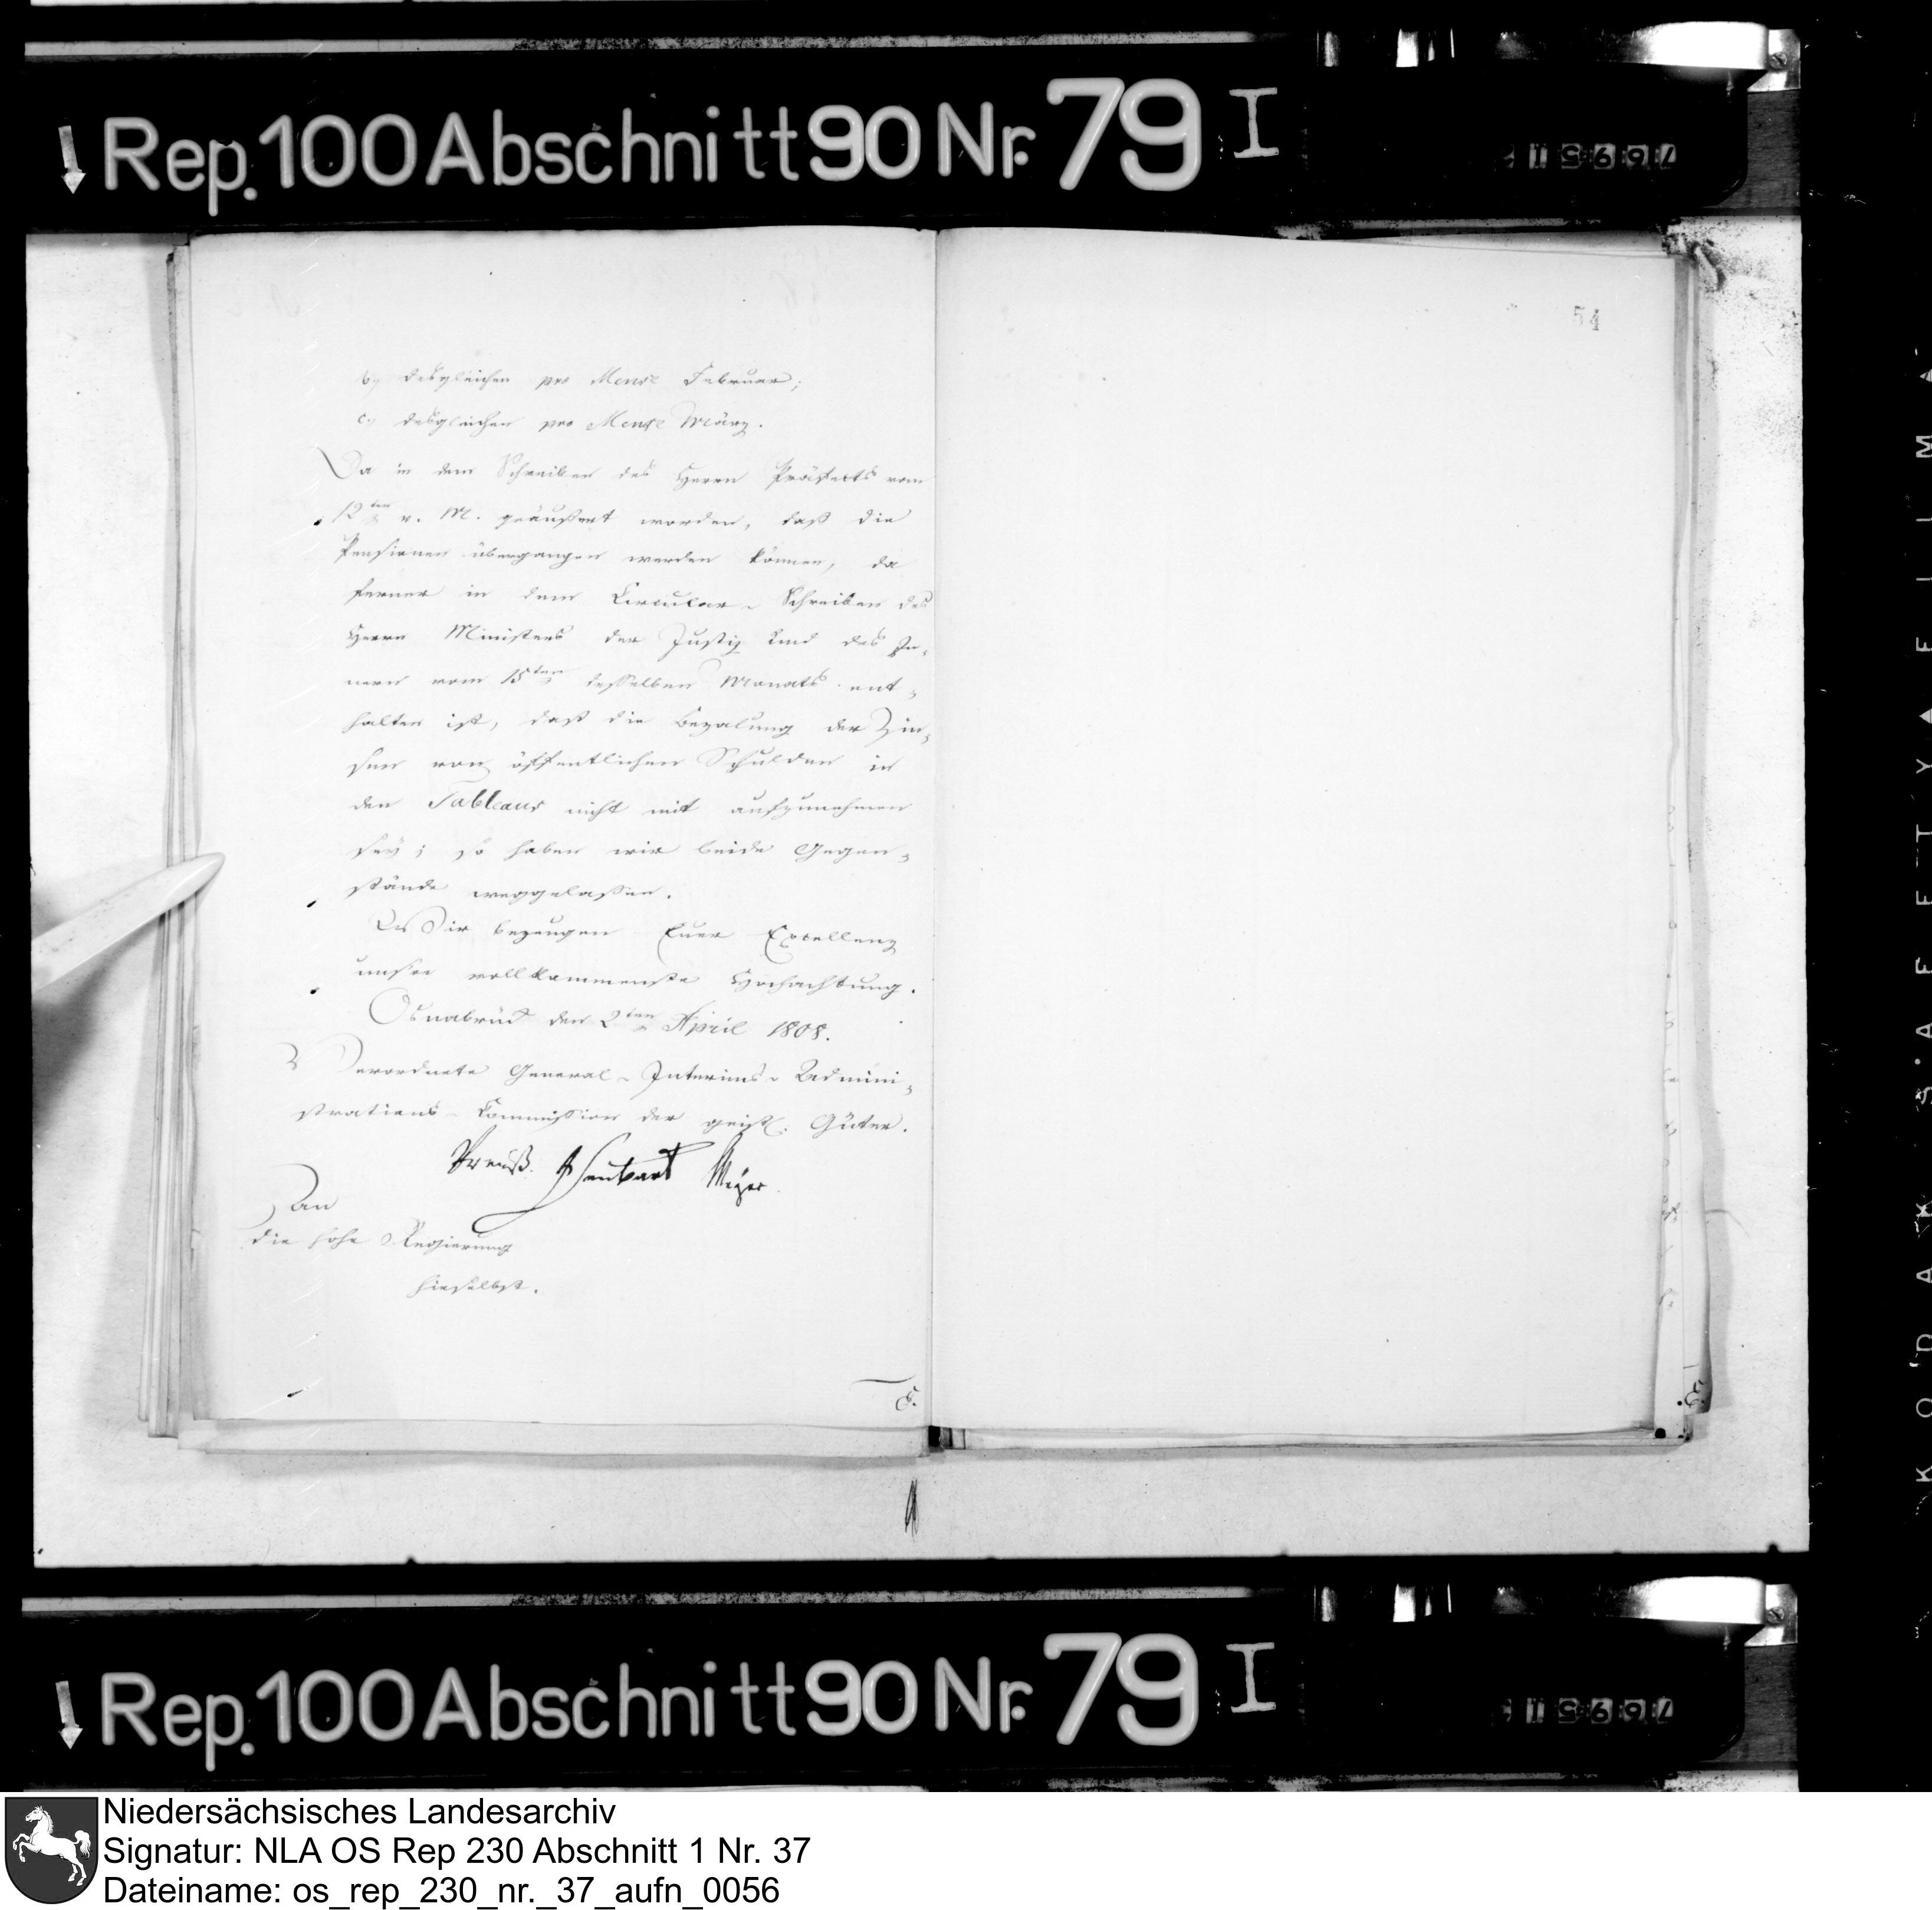 Rep. 100 Abschnitt 90 Nr. 79 I
54
b., desgleichen pro Mense Februar;
c., desgleichen pro Mense März.
Da in dem Schreiben des Herrn Präfects vom
12ten v. M. geäußert worden, daß die
Pensionen übergangen werden können, da
ferner in dem Circular-Schreiben des
Herrn Ministers der Justiz und des In-
nern vom 15ten desselben Monats ent-
halten ist, daß die Bezalung der Zin-
sen von öffentlichen Schulden in
den Tableaux nicht mit aufzunehmen
sey; so haben wir beide Gegen-
stände weggelaßen.
Wir bezeugen Euer Excellenz
unsre vollkommenste Hochachtung.
Osnabrück den 2ten April 1808.
Verordnete General-Interims-Admini-
strations-Commission der geistl. Güter.
Preuß. Meyer
An
die hohe Regierung
hieselbst.
Rep. 100 Abschnitt 90 Nr. 79 I
Niedersächsisches Landesarchiv
Signatur: NLA OS Rep 230 Abschnitt 1 Nr. 37
Dateiname: os_rep_230_nr._37_aufn_0056